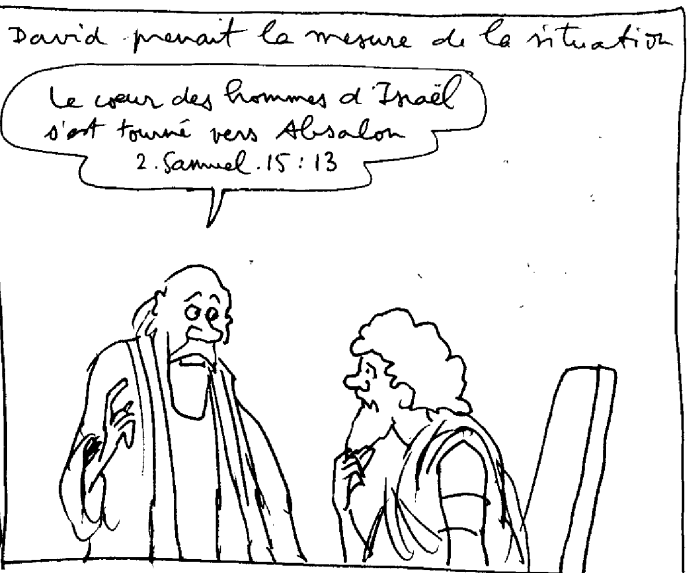 David prenait la mesure de la situation
Le cœur des hommes d'Israël
s'est tourné vers Absalon
2. Samuel. 15 : 13